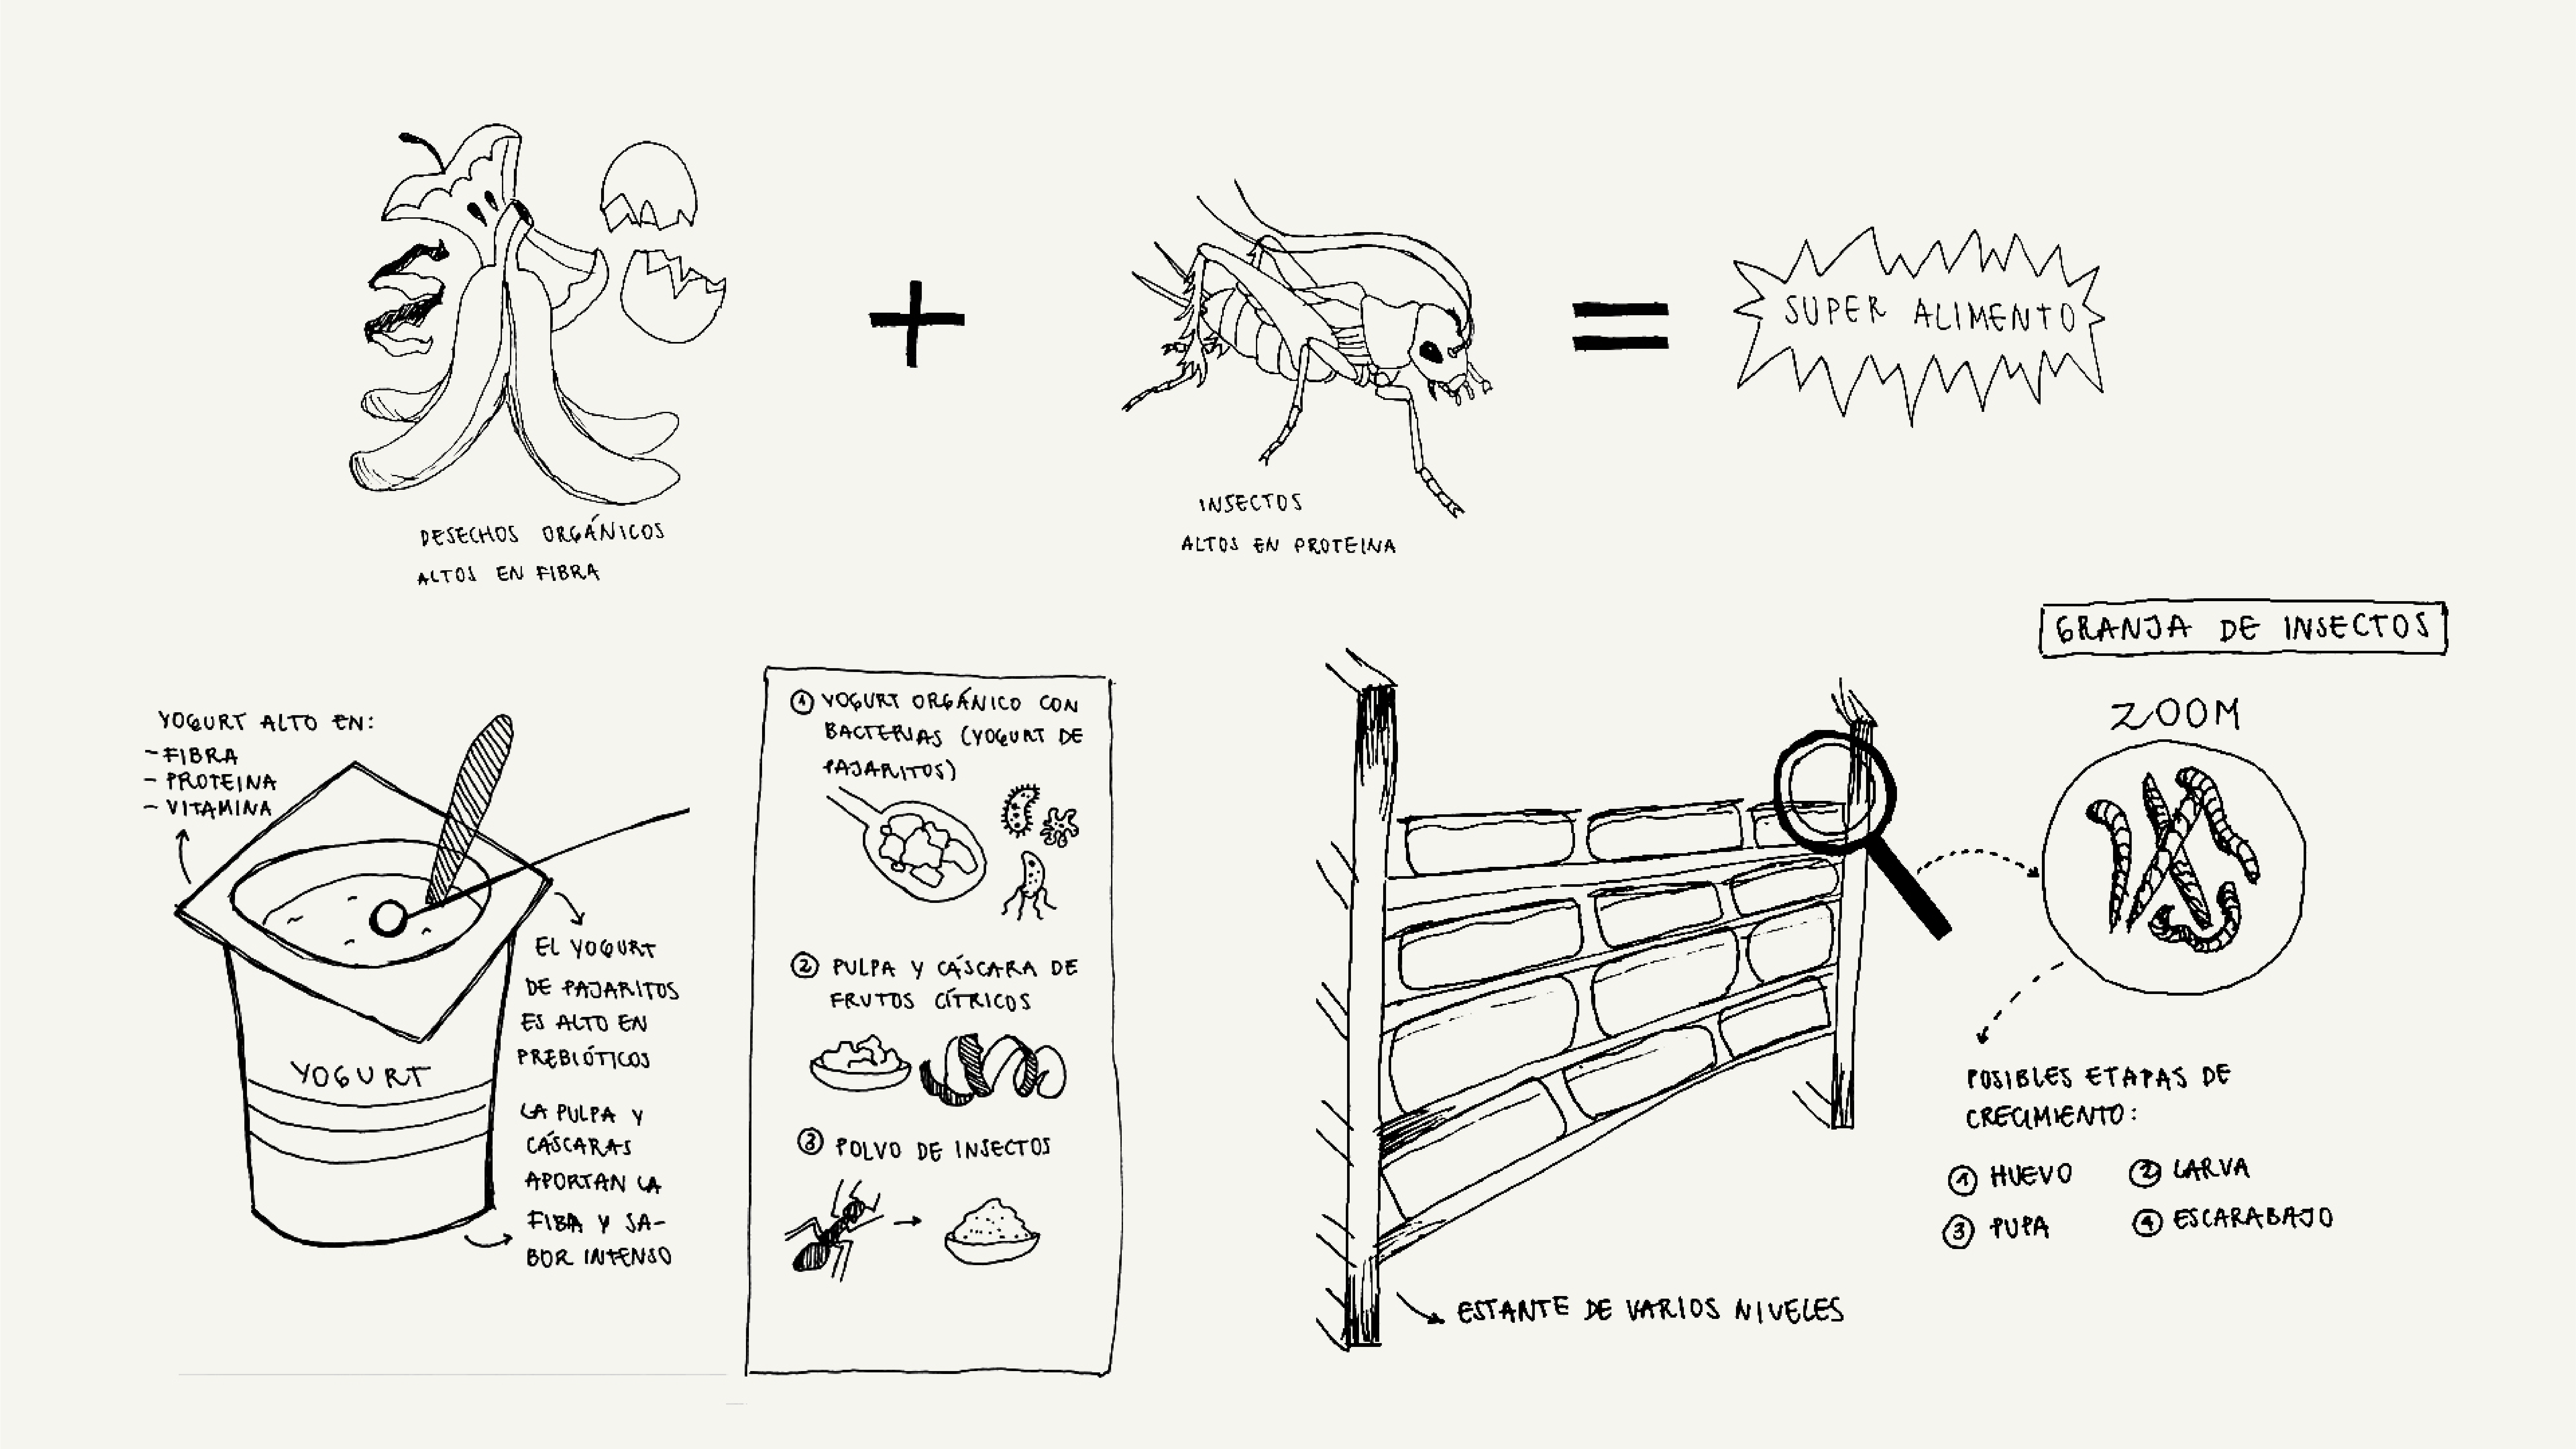 DESECHOS ORGÁNICOS
ALTOS EN FIBRA
INSECTOS
ALTOS EN PROTEINA
SUPER ALIMENTO
YOGURT ALTO EN:
- FIBRA
- PROTEINA
- VITAMINA
YOGURT
EL YOGURT
DE PAJARITOS
ES ALTO EN
PREBIÓTICOS
LA PULPA Y
CÁSCARAS
APORTAN LA
FIBA Y SA-
BOR INTENSO
① YOGURT ORGÁNICO CON
BACTERIAS (YOGURT DE
PAJARITOS)
② PULPA Y CÁSCARA DE
FRUTOS CÍTRICOS
③ POLVO DE INSECTOS
GRANJA DE INSECTOS
ZOOM
POSIBLES ETAPAS DE
CRECIMIENTO:
① HUEVO ② LARVA
③ PUPA ④ ESCARABAJO
ESTANTE DE VARIOS NIVELES